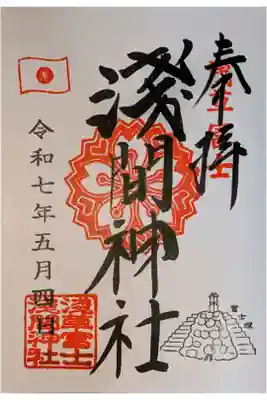 奉拝
淺間神社
令和七年五月四日
淺草富士
淺間神社
富士塚